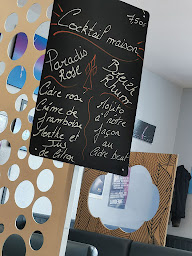 7,50€
Cocktail maison
Paradis
Rose
Cidre rosé
Crème de
framboise
Menthe et
Jus
de Citron
Breizh
Rhum
Mojito
à notre
façon
au
Cidre brut